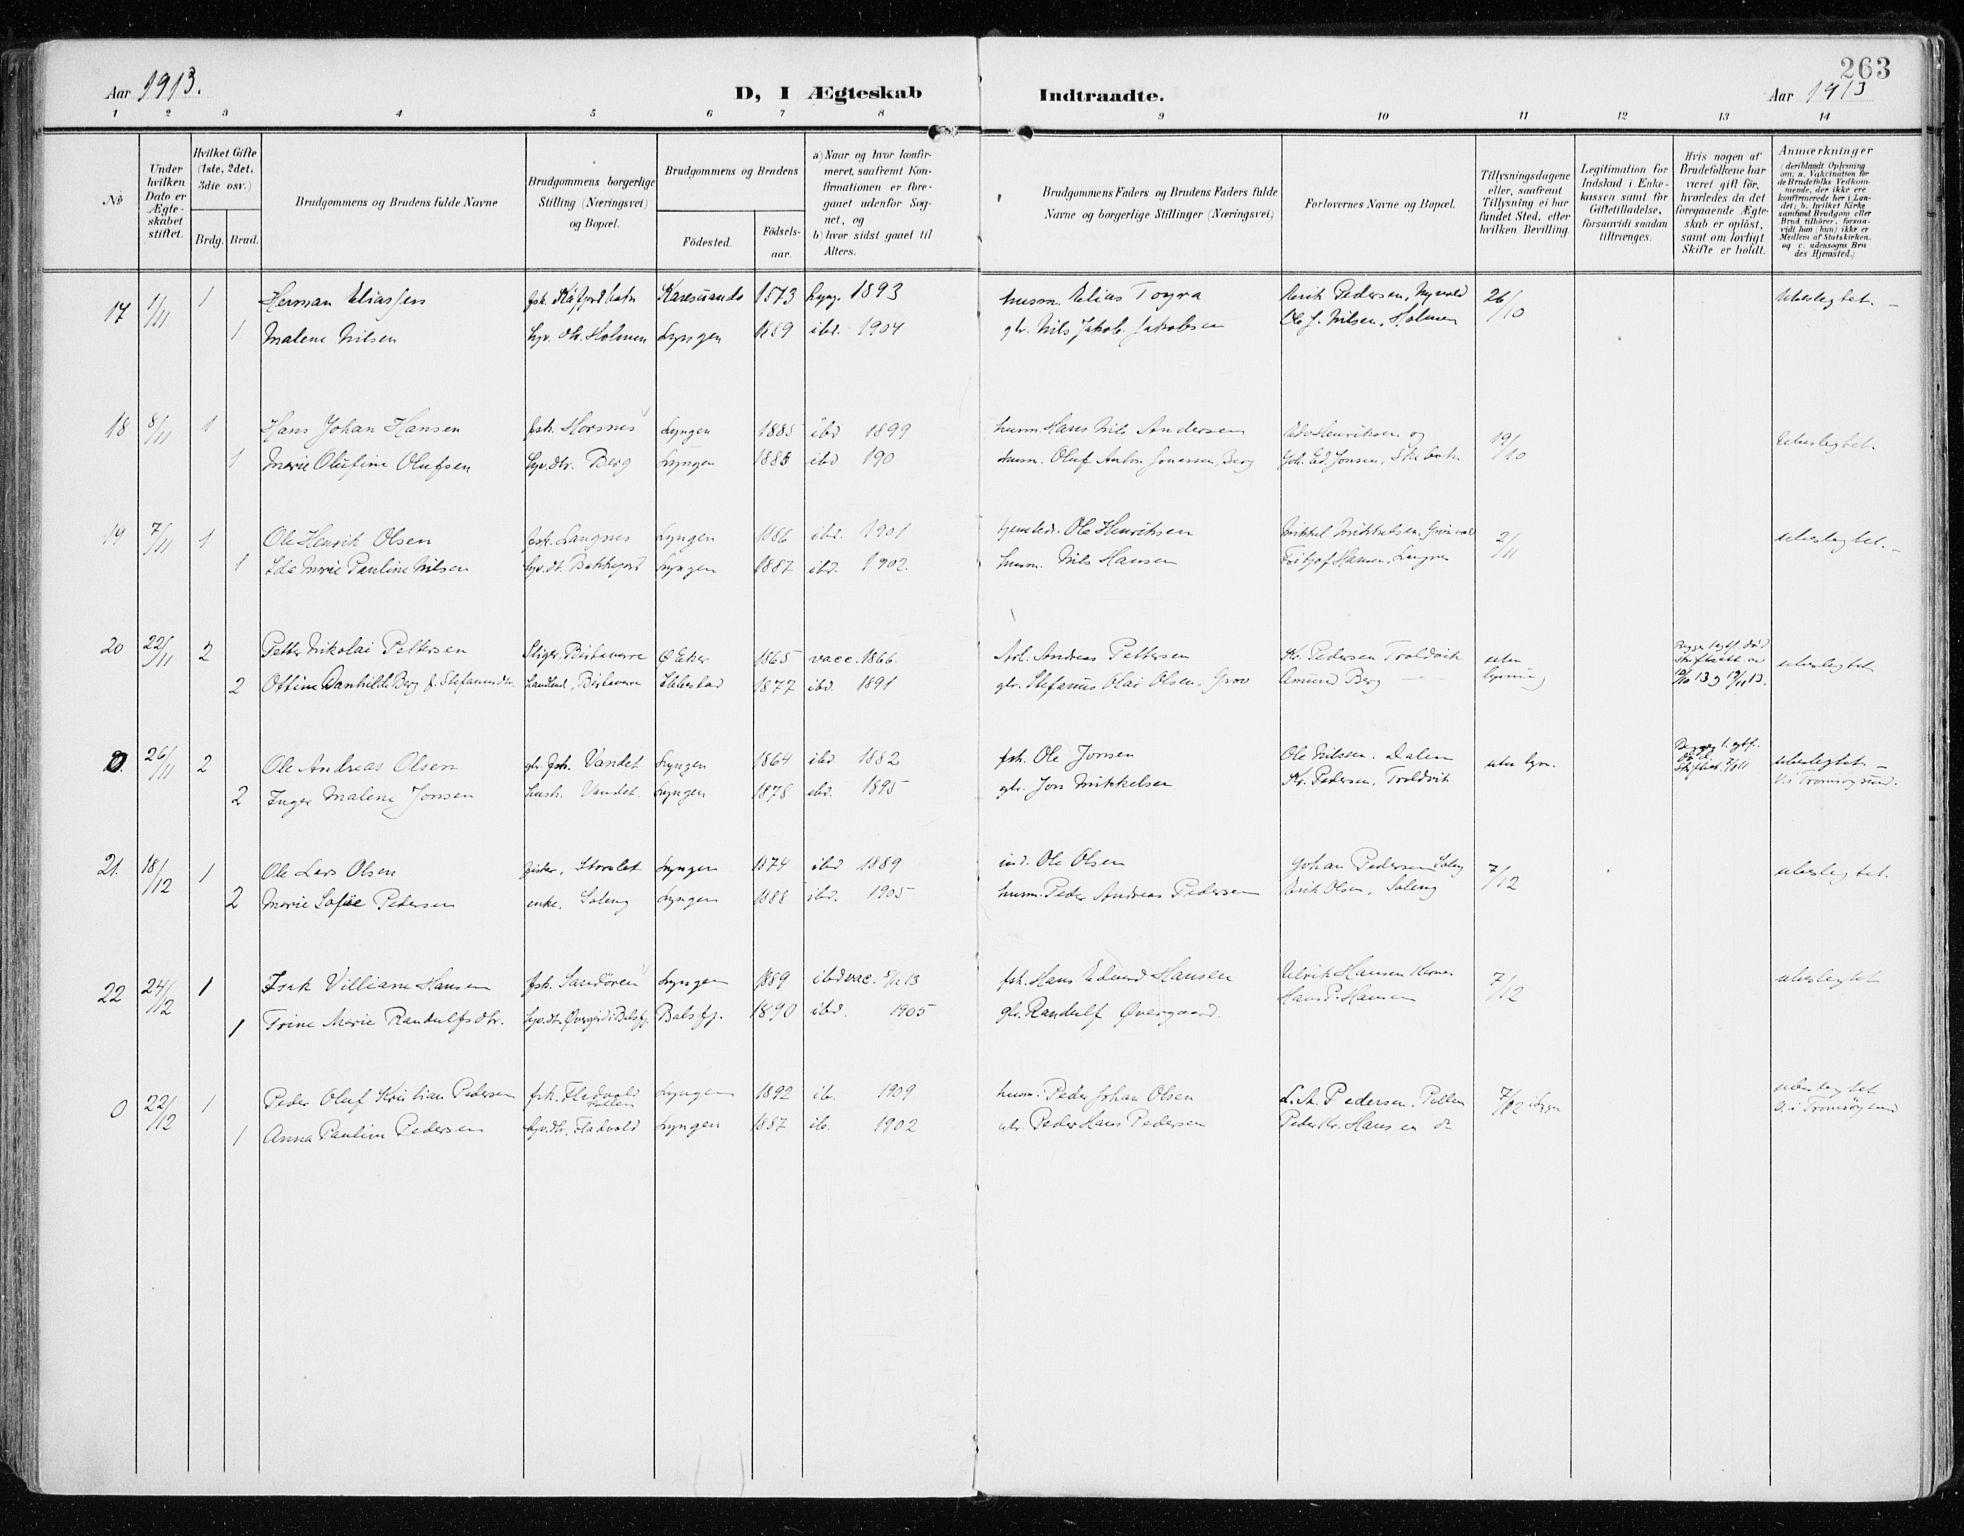 263
Aar 1913. D, I Ægteskab Indtraadte. Aar 1913
1 2 3 4 5 6 7 8 9 10 11 12 13 14
No
Under hvilken Dato er Ægteskabet stiftet.
Hvilket Gifte (1ste, 2det, 3die osv.)
Brdg. Brud.
Brudgommens og Brudens fulde Navne
Brudgommens borgerlige Stilling (Næringsvei) og Bopæl.
Brudgommens og Brudens
Födested. Födsels-aar.
a) Naar og hvor konfirmeret, saafremt Konfirmationen er foregaaet udenfor Sognet, og
b) hvor sidst gaaet til Alters.
Brudgommens Faders og Brudens Faders fulde Navne og borgerlige Stillinger (Næringsvei)
Forlovernes Navne og Bopæl.
Tillysningsdagene eller, saafremt Tillysning ei har fundet Sted, efter hvilken Bevilling.
Legitimation for Indskud i Enkekassen samt for Giftetilladelse, forsaavidt saadan tiltrænges.
Hvis nogen af Brudefolkene har været gift för, hvorledes da det foregaaende Ægteskab er oplöst, samt om lovligt Skifte er holdt.
Anmærkninger
(deriblandt Oplysning om: a. Vakcination for de Brudefolks Vedkommende, der ikke ere konfirmerede her i Landet; b. hvilket Kirkesamfund Brudgom eller Brud tilhörer, forsaavidt han (hun) ikke er Medlem af Statskirken, og c. udensogns Brudes Hjemsted.)
17 1/11 1 Herman Eliassen fsk. Kåfjordbotn Karesuando 1873 Lyng. 1893 husm. Elias Togra Erik Pedersen, Nyvold 26/10 Ubeslegtet. -
1 Malene Nilsen Lyngen 1889 ibd. 1904 gbr. Nils Jakob Jakobsen Ole J. Nilsen, Holmen
18 8/11 1 Hans Johan Hansen fsk. Horsnes Lyngen 1885 ibd 1899 husm. Hans Nils Andersen Henriksen og 19/10 Ubeslegtet.
1 Marie Olufine Olufsen Berg Lyngen 1885 ibd 190 husm. Oluf Anton Jonassen, Berg Joh. Ed. Jensen,
19 7/11 1 Ole Henrik Olsen fsk. Langnes Lyngen 1886 ibd. 1901 Ole Henriksen Mikkel Mikkelsen, 2/11 ubeslegtet. -
1 Ida Marie Pauline Nilsen Lyngen 1887 ibd. 1902. husm. Nils Hansen Hansen, Langnes
20 22/11 2 Petter Nikolai Pettersen Stiger, Birtavarre Ø Eker 1865 vacc. 1866. Arb. Andreas Pettersen Kr. Pedersen Troldvik uten ubeslegtet
2 Ottine Danhilde Berg f. Stefanusdtr. Birtavarre Ibbestad 1877 ibd. 1891 gbr. Stefanus Olai Olsen, Grov Amund Berg lysning
0. 26/11 2 Ole Andreas Olsen gbr. fsk. Vandet Lyngen 1864 ibd 1882 fsk. Ole Jonsen Ole Nilssen. Dalen uten lysn. ubeslegtet -
2 Inger Malene Jonsen hush. Vandet. Lyngen 1878 ibd. 1895 gbr. Jon Mikkelsen Kr. Pedersen, Troldvik V. i Tromsøysund.
21. 18/12 1 Ole Lars Olsen fisker, Storslet Lyngen 1874 ibd 1889 ind. Ole Olsen Johan Pedersen Soleng 7/12 ubeslegtet.
2 Marie Sofie Pedersen enke, Soleng Lyngen 1888 ibd. 1905 husm. Peder Andreas Pedersen Erik Olsen, Soleng
22 24/12 1 Isak Villiam Hansen fsk. Sandören Lyngen 1889 ibd vac. 5/12 13 fsk. Hans Edvard Hansen Ulrik Hansen 7/12 ubeslegtet
1 Trine Marie Randulfsdtr. Balsfj. 1890 ibd. 1905 gbr. Randulf Øvergaard. Hans P. Hansen
0 22/12 1 Peder Oluf Kristian Pedersen fsk. Fladvold Lyngen 1892 ib. 1909 husm. Peder Johan Olsen L. A. Pedersen, Pollen 7/12 ubeslegtet
1 Anna Pauline Pedersen Fladvold Lyngen 1887 ib. 1902 gbr. Peder Hans Pedersen Peder Kr. Hansen V. i Tromsøysund